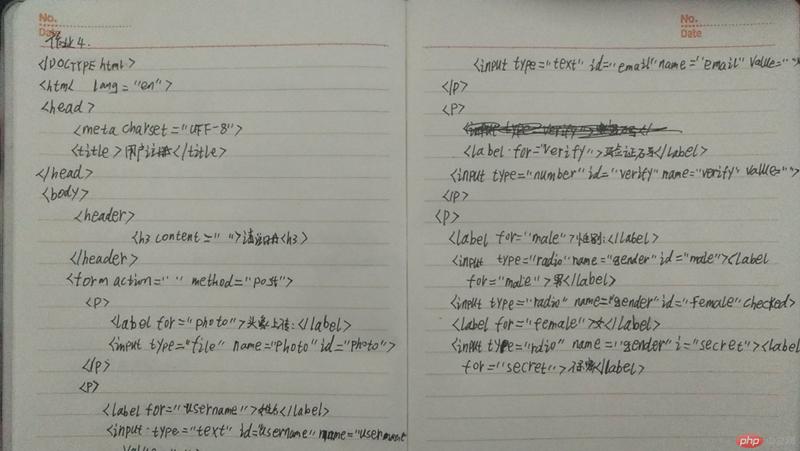 No.
Date
作业4.
</!DOCTYPE html>
<html lang="en">
<head>
<meta charset="UFF-8">
<title>用户注册</title>
</head>
<body>
<header>
<h3 content=" ">请注册<h3>
</header>
<form action=" " method="post">
<p>
<label for="photo">头象上传:</label>
<input type="file" name="photo" id="photo">
</p>
<p>
<label for="username">姓名</label>
<input type="text" id="username" name="username"
No.
Date
<input type="text" id="email" name="email" value=" ">
</p>
<p>
<label for="verify">验证码</label>
<input type="number" id="verify" name="verify" value=" ">
</p>
<p>
<label for="male">性别:</label>
<input type="radio" name="gender" id="male"><label
for="male">男</label>
<input type="radio" name="gender" id="female" checked>
<label for="female">女</label>
<input type="rdio" name="gender" i="secret"><label
for="secret">保密</label>
php